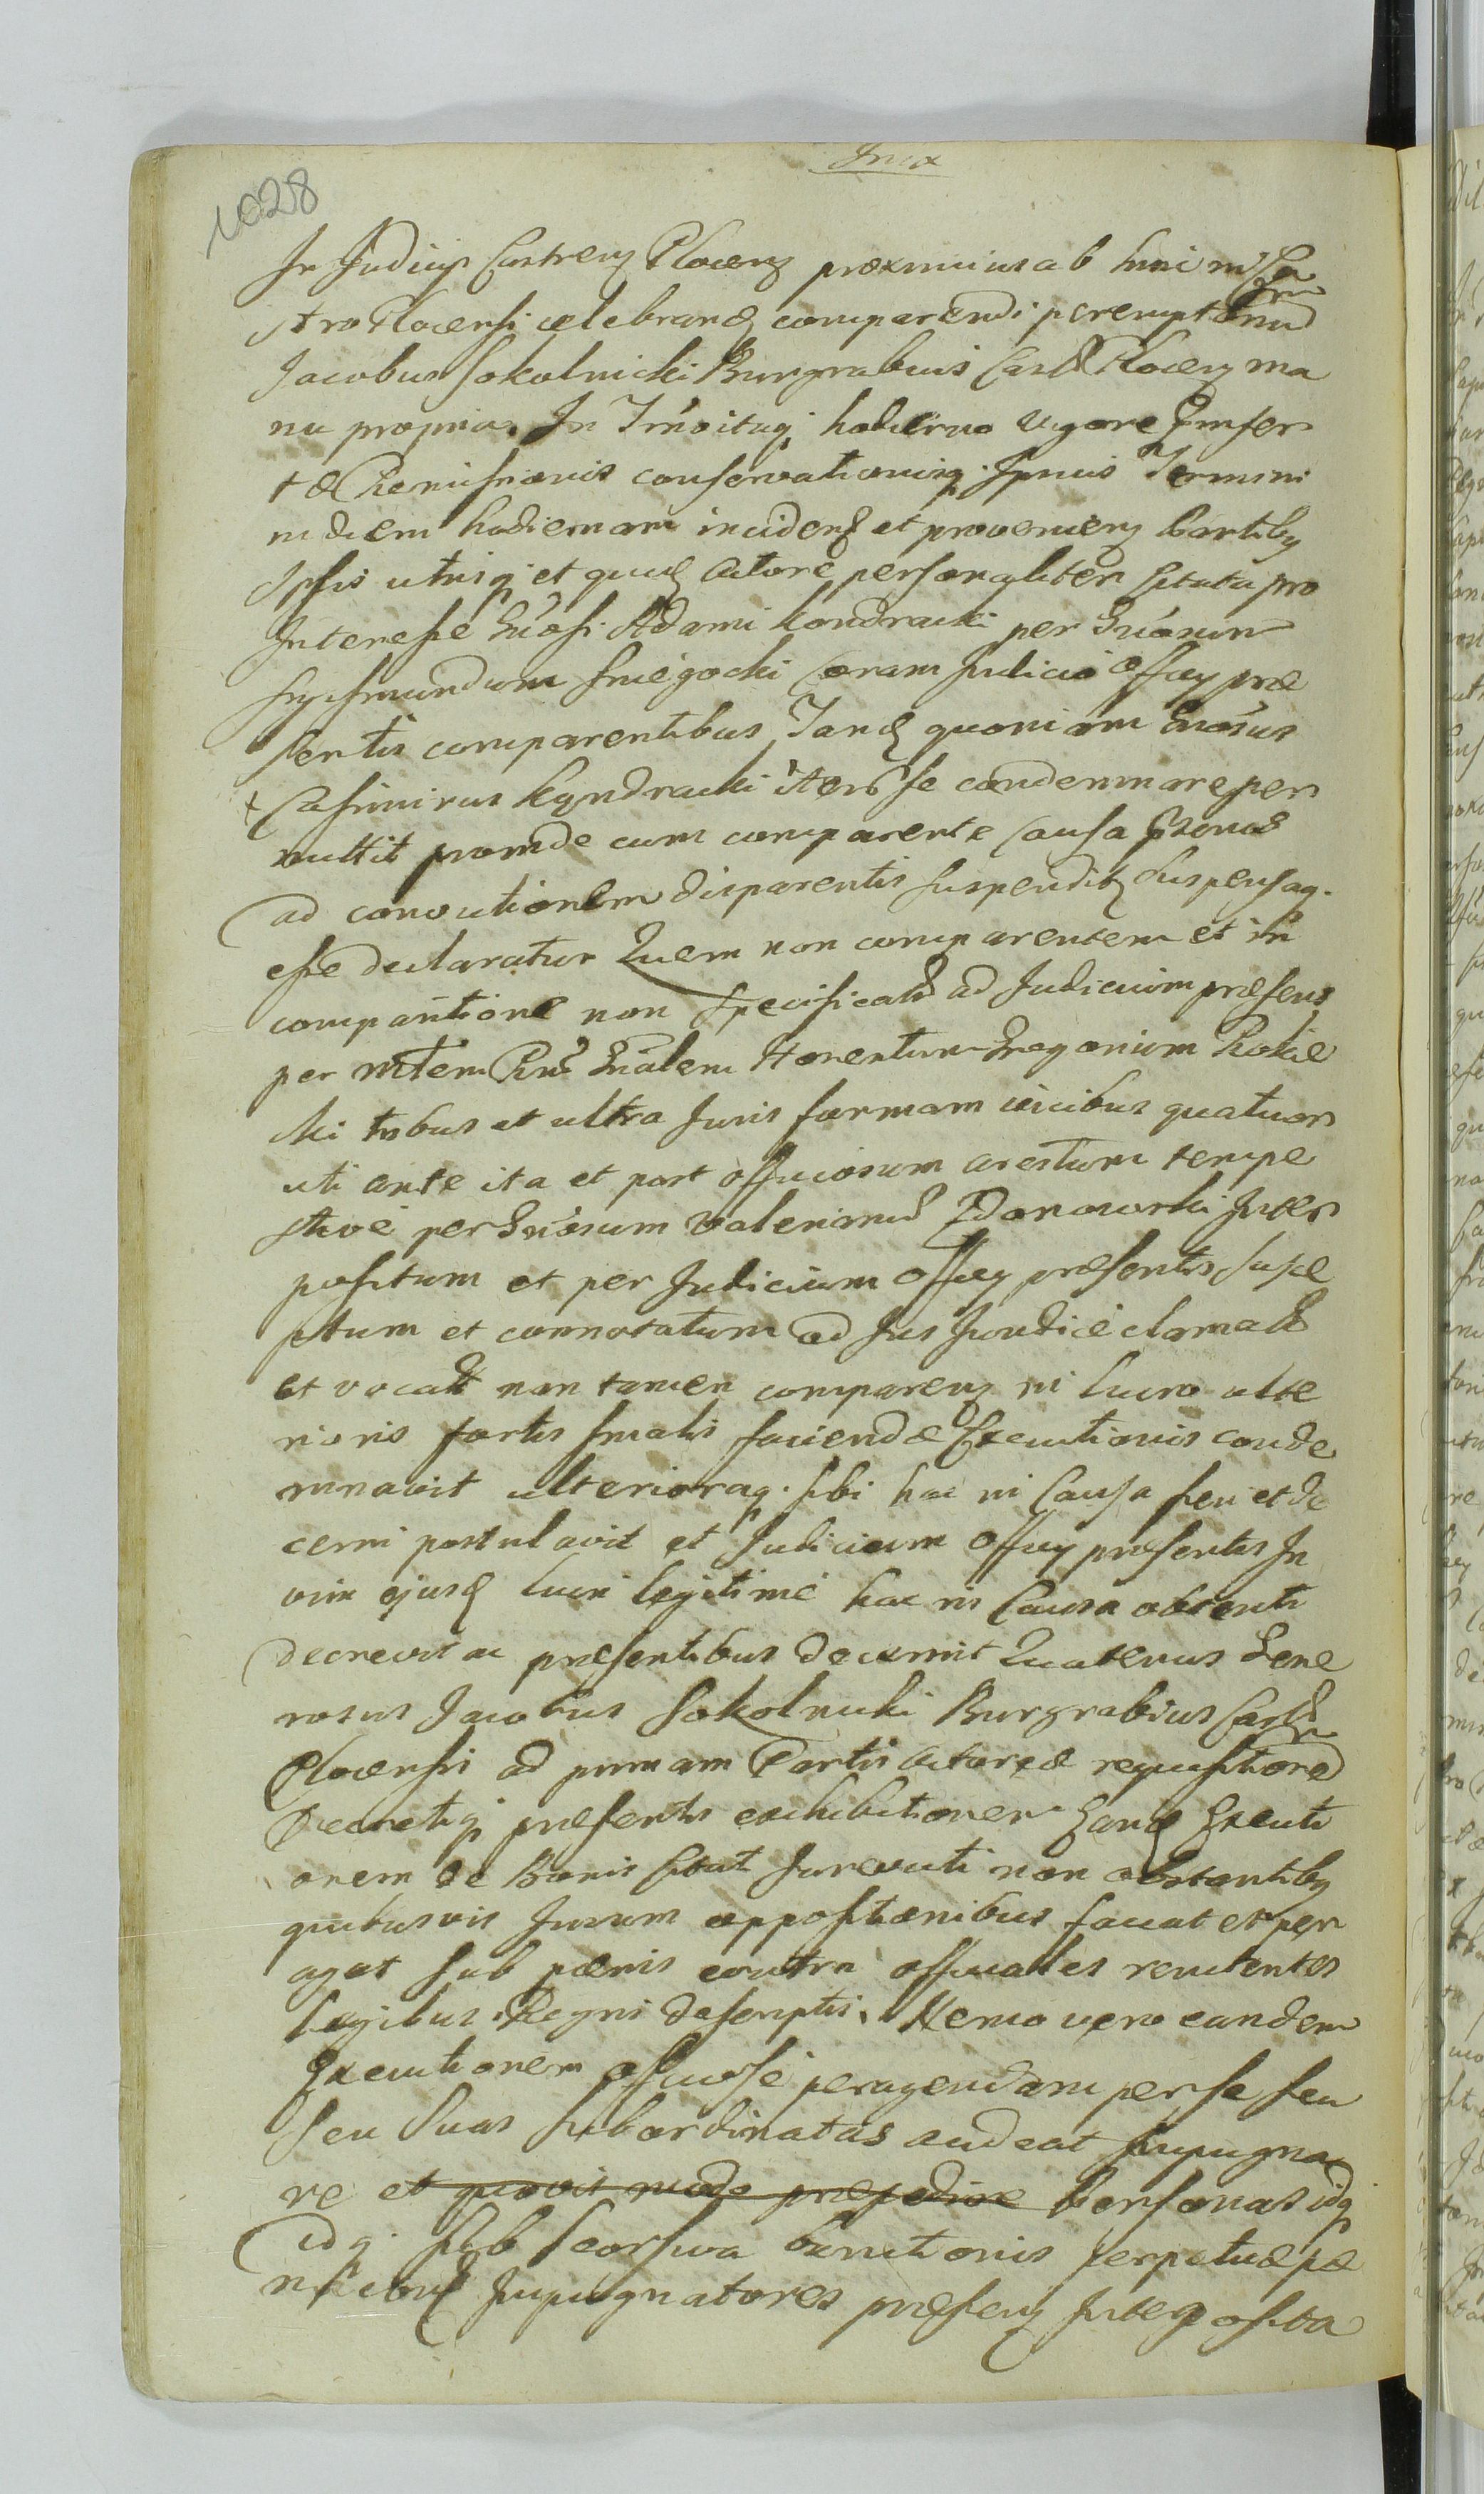 1028
In Judicijs Castrens Plocens proximius ab hinc in Ca
stro Plocensi celebrand comparendi peremptorium
Jacobus Sokolnicki Burgrabius Castr Plocens ma
nu propria. In Tnoitaq hodierno vigore
Remissionis conservationisq Termini
in diem hodiernam inciden et provenien Partibq
Ipsis utrisq et quid Actore personaliter Citata pro
Interesse Gnosi Adami Kondracki per Gnosum
Sigismundum Sniegocki Coram Judicio Officy præ
sentis comparentibus, Tand quoniam Gnosus
+ Casimirus Kondracki iterü se condemnare per
mittit proinde cum comparente Causa
ad convictionem disparentis suspendit, suspensaq.
esse declaratur Quem non comparentem et in
comparitione non specificatü ad Judicium præsens
per mtem Rni Gnalem Honestum Gregorium Rokic
ki tribus et ultra Juris formam vicibus quatuor
uti ante ita et post officiosum arestum tempe
stivè per Gnosum Valerianü Zdanowski Inter
positum et per Judicium Officy præsentis susce
ptum et connotatum ad Jus Juridicè clamatü
et vocatü non tamen comparens in lucro ulte
rioris fortis finalis faciendæ Executionis conde
mnavit ulterioraq. sibi hac in Causa fieri et de
cerni postulavit et Judicium Officy præsentis In
vim ejusd lucri legitimè hac in Causa obtenti
decrevit ac præsentibus decernit Quatenus Gene
rosus Jacobus Sokolnicki Burgrabius Castr
Plocensis ad primam Partis Actoreæ requisitionem
Decretiq præsentis exhibitionem Eand Executi
onem de Bonis Citati Jurevicti non obstantibq
quibusvis Jurium oppositionibus faciat et per
agat sub pænis contra officiales renitentes
Legibus Regni descriptis. Nemo vero eandem
Executionem officiosè peragendam per se seu
seu Suas subordinatas audeat impugna
re et quovis modo præpedire Personas idq
idq. sub seorsiva Punitionis perpetuæ pæ
Impugnatores præsens Interposita